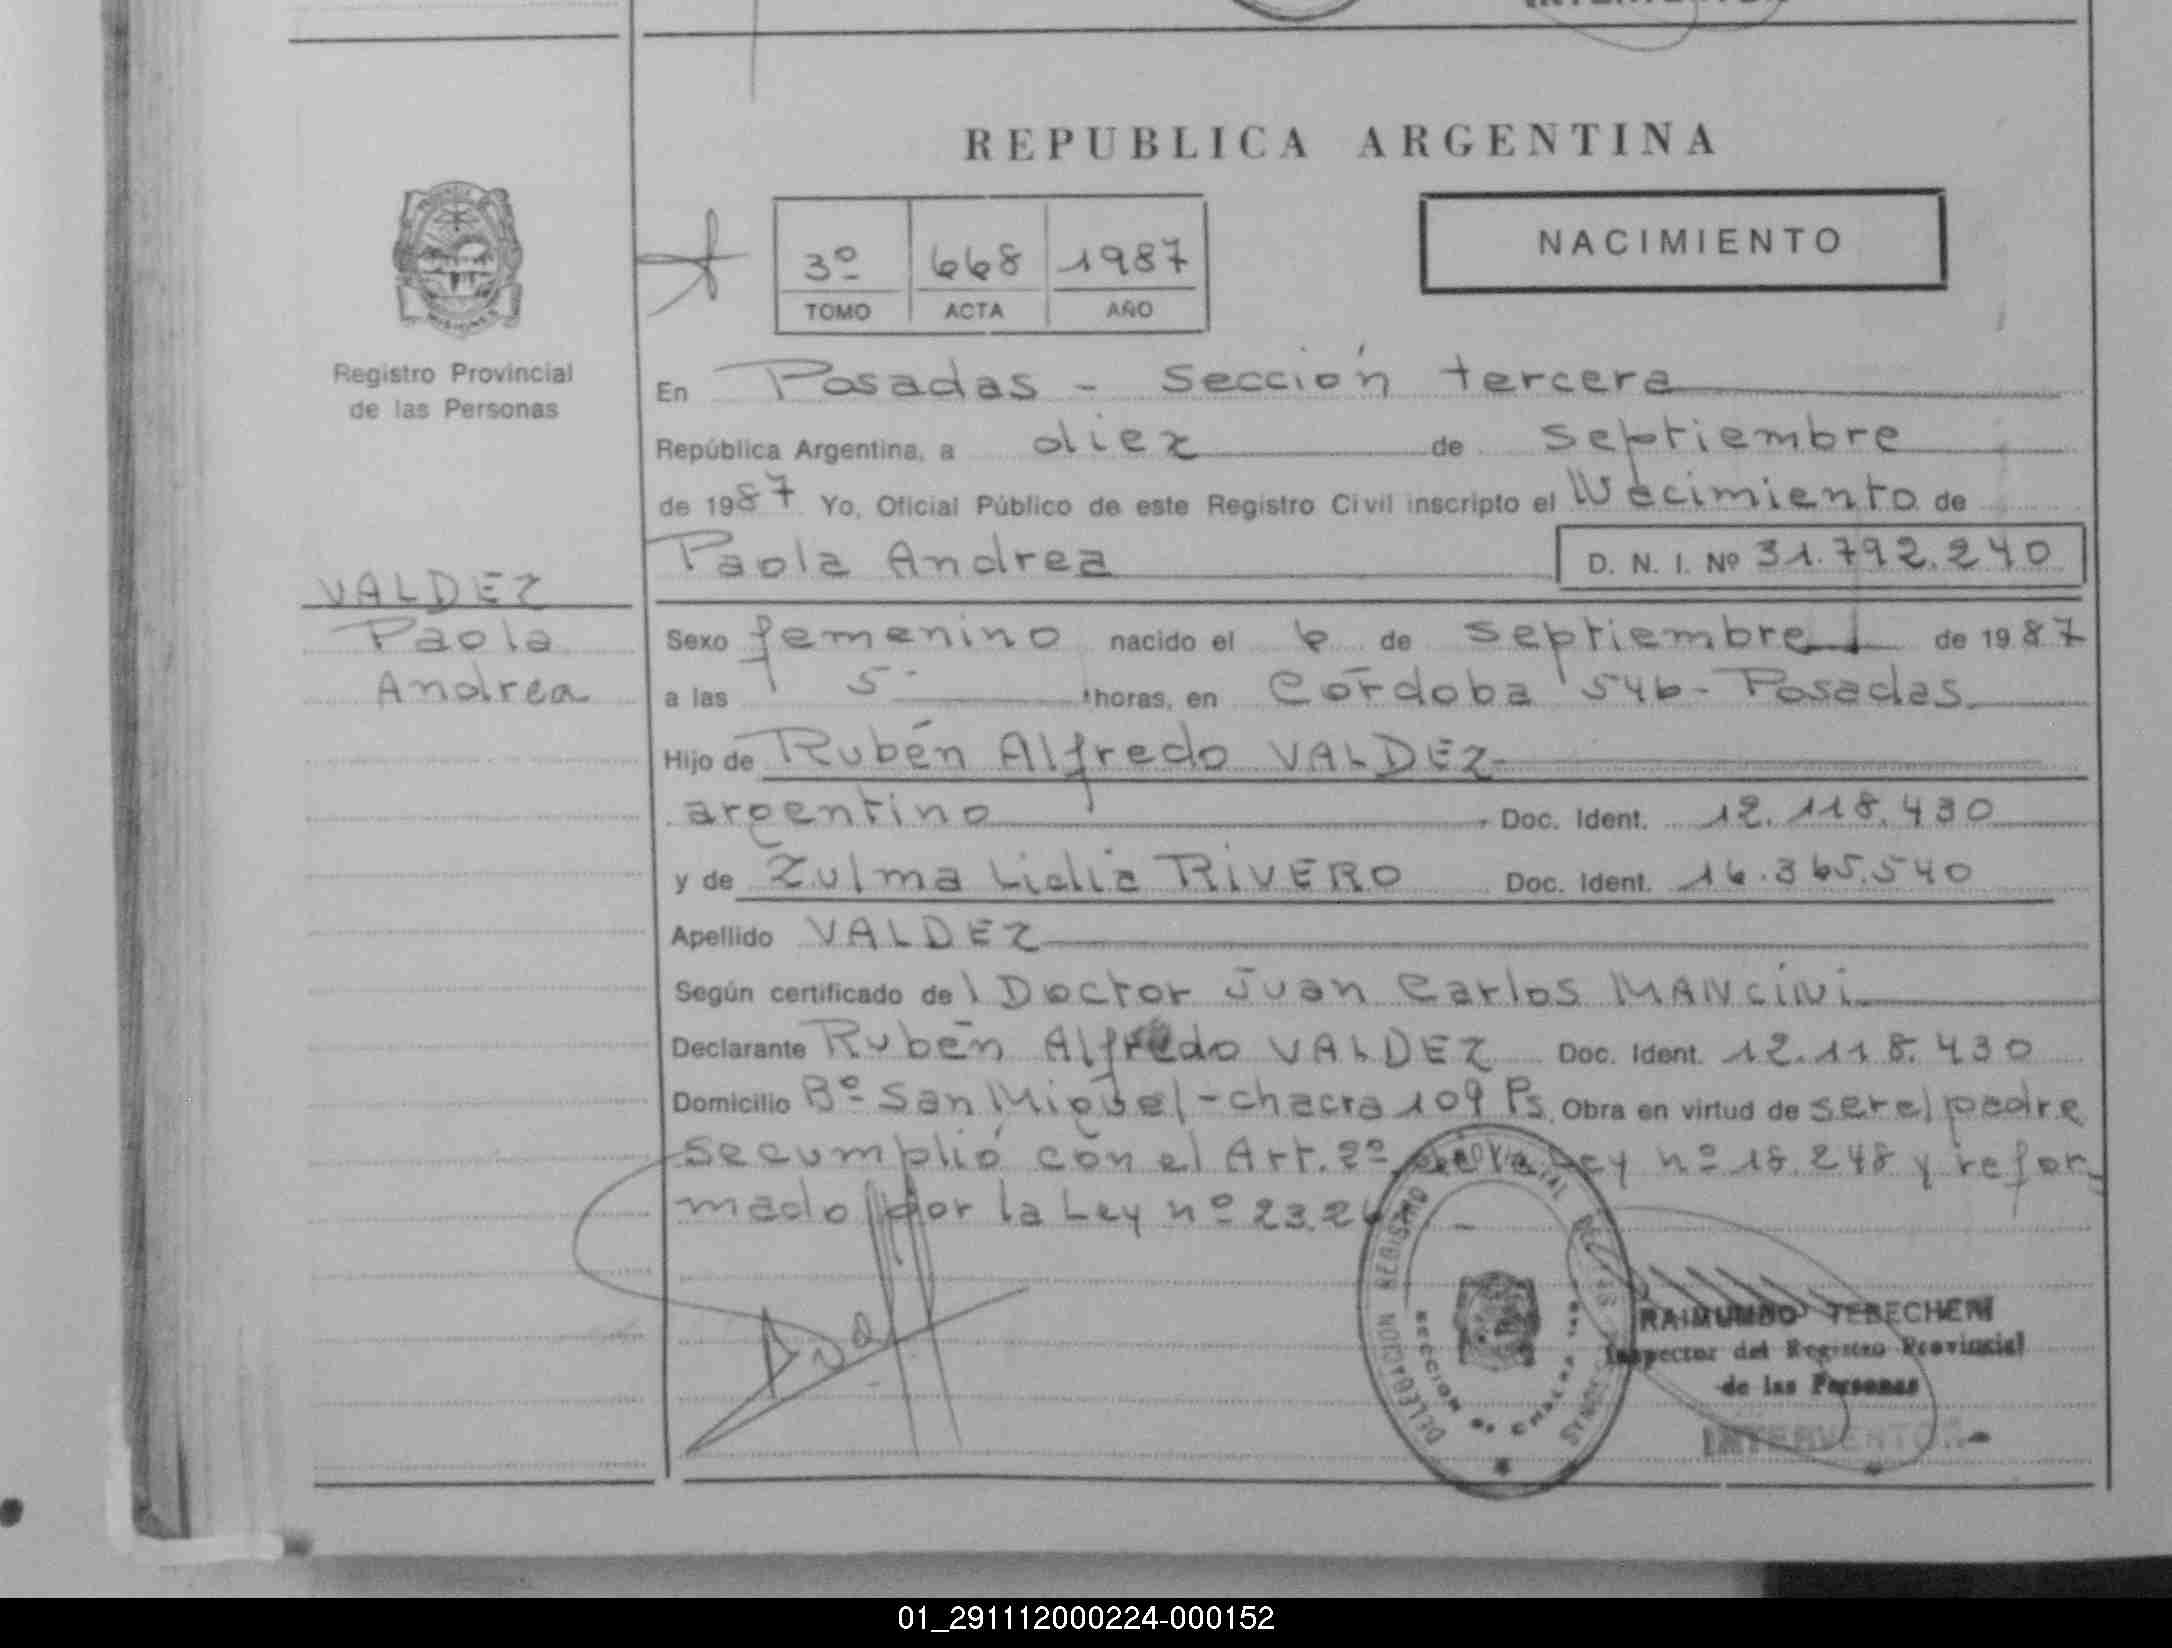 REPUBLICA ARGENTINA
NACIMIENTO
3º 668 1987
TOMO ACTA AÑO
MISIONES
Registro Provincial
de las Personas
VALDEZ
Paola
Andrea
En Posadas - Sección tercera
República Argentina, a diez de septiembre
de 1987 Yo, Oficial Público de este Registro Civil inscripto el Nacimiento de
Paola Andrea D. N. I. Nº 31.792.240
Sexo femenino nacido el 6 de septiembre de 1987
a las 5- horas, en Córdoba 546- Posadas
Hijo de Rubén Alfredo VALDEZ
argentino Doc. Ident. 12.118.430
y de Zulma Lidia RIVERO Doc. Ident. 16.365.540
Apellido VALDEZ
Según certificado del Doctor Juan Carlos MANCINI
Declarante Rubén Alfredo VALDEZ Doc. Ident. 12.118.430
Domicilio Bº San Miguel - chacra 109 Ps. Obra en virtud de ser el padre
se cumplió con el Art. 2º de la Ley nº 18.248 y refor-
mado por la Ley nº 23.26
DELEGACION REGISTRO PROVINCIAL DE LAS PERSONAS
RAIMUNDO TEBECHERI
Inspector del Registro Provincial
de las Personas
INTERVENTOR
01_291112000224-000152